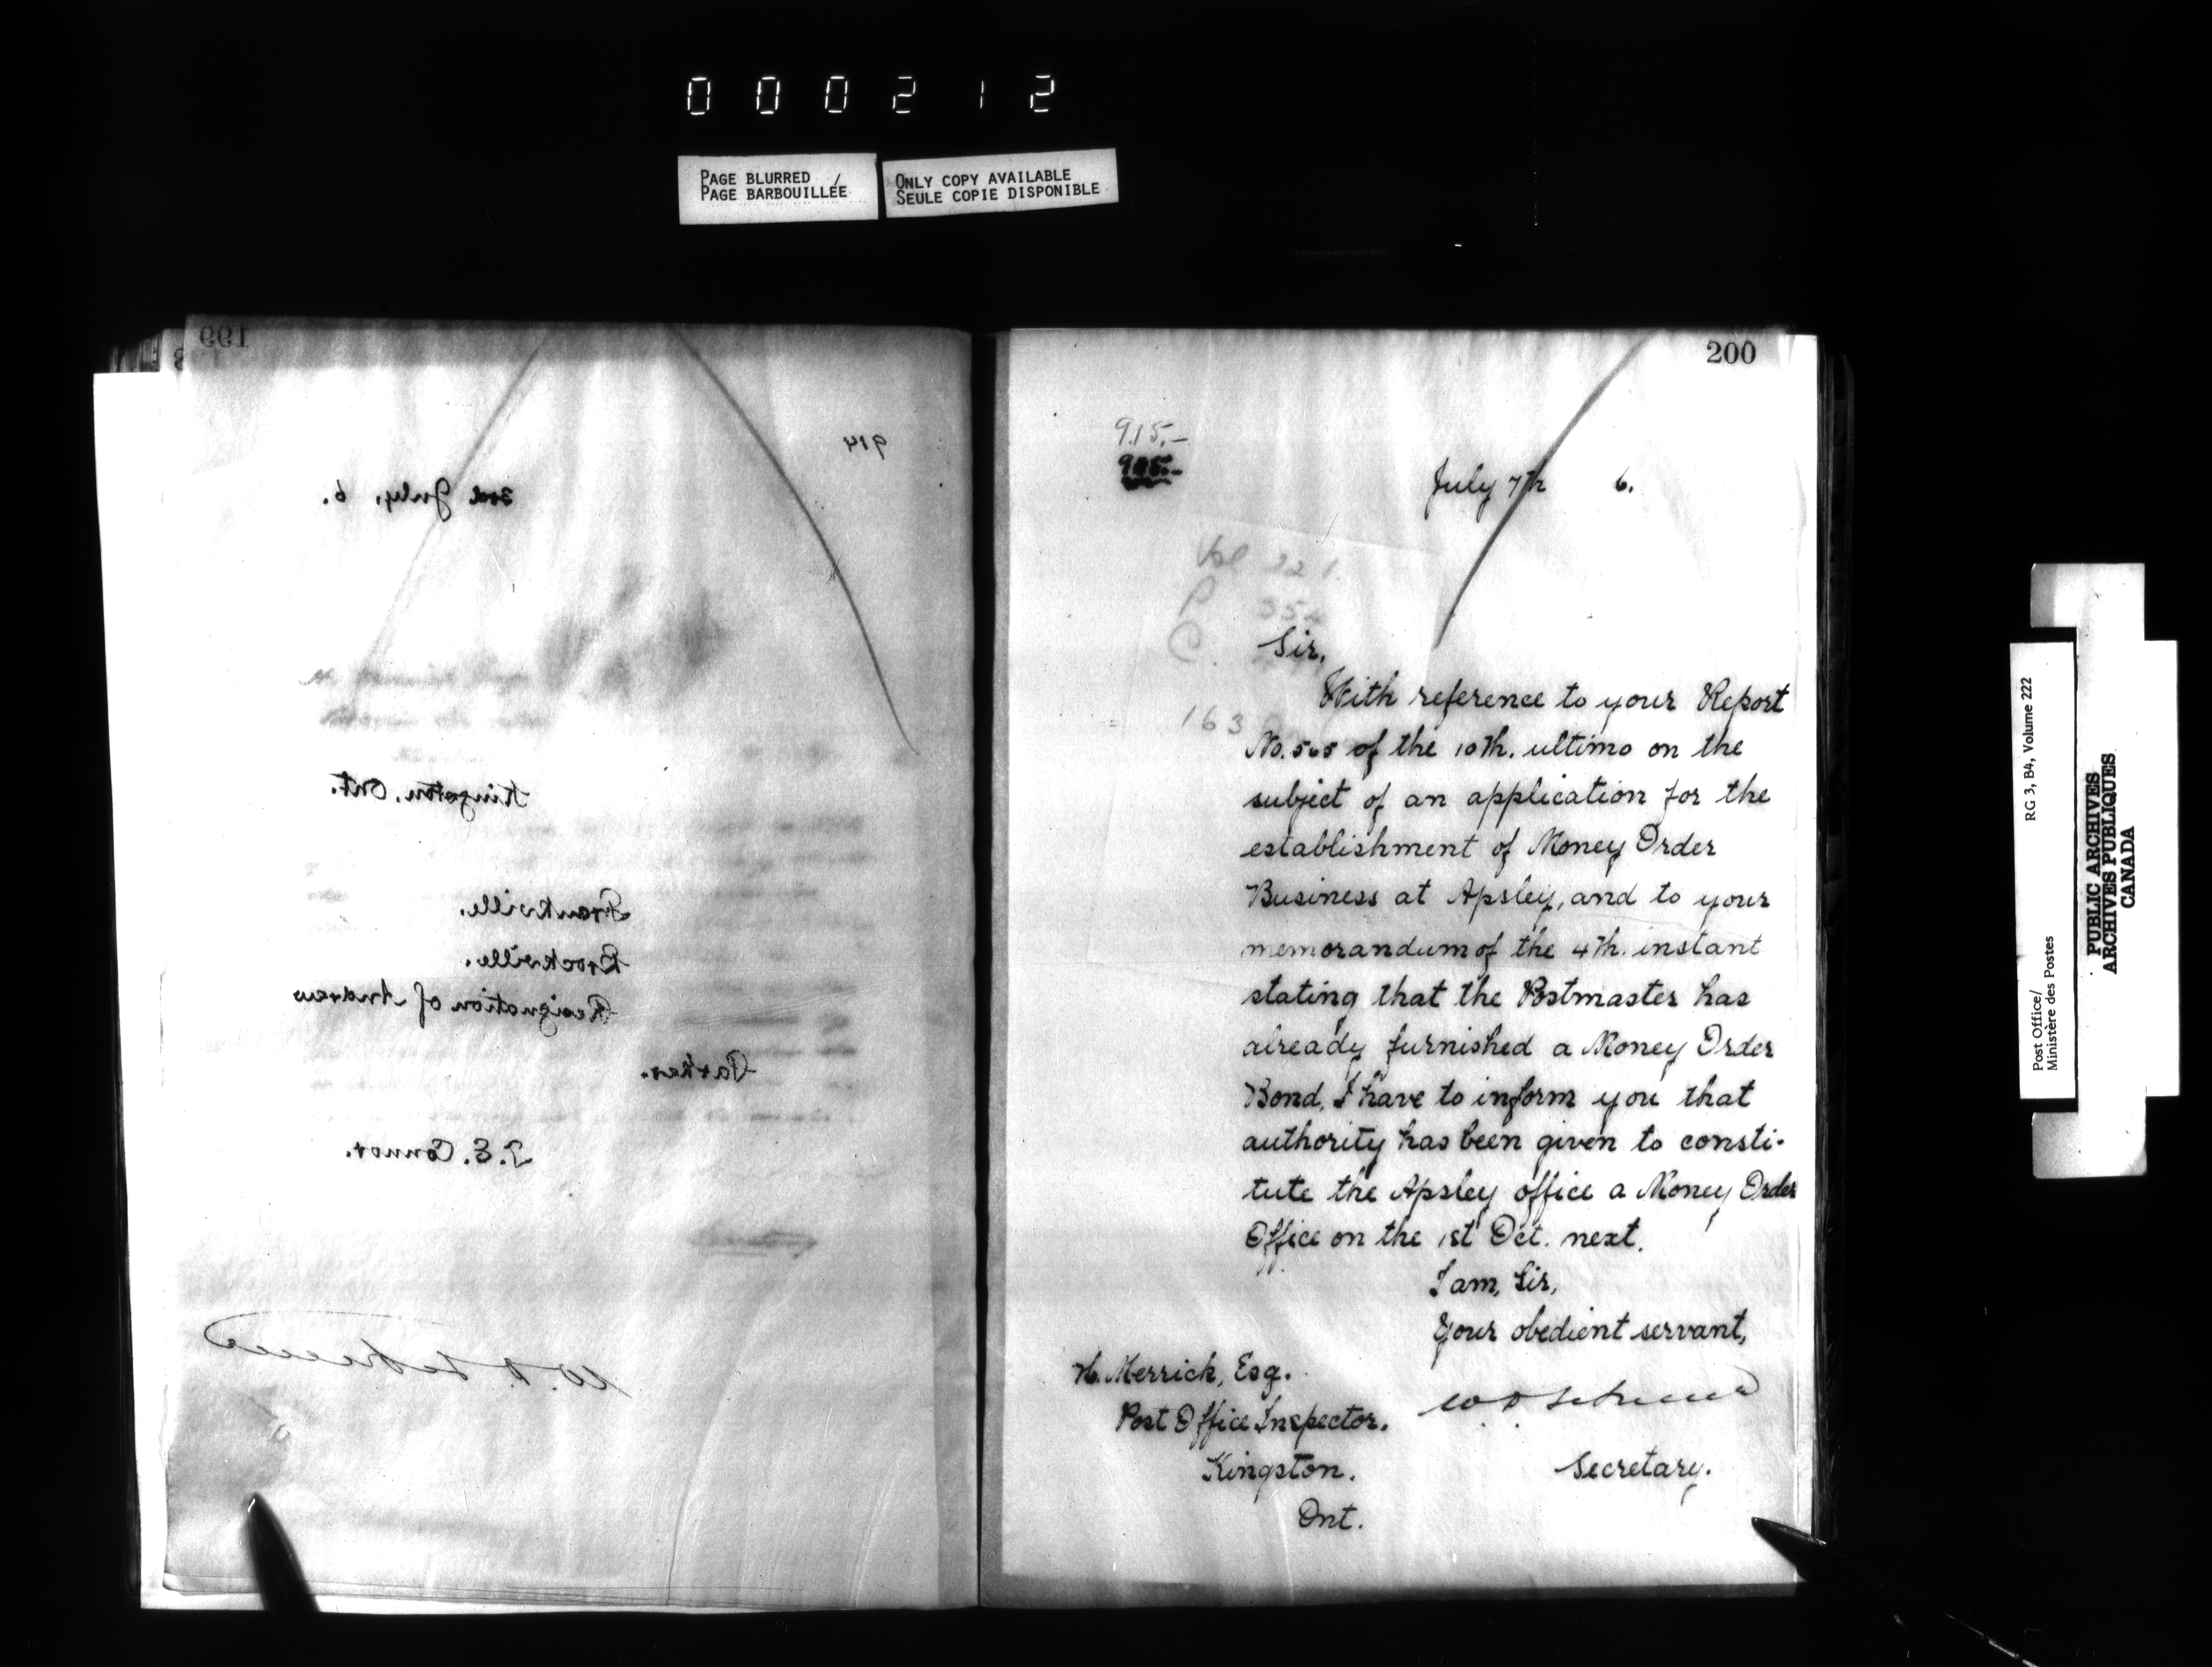 000212
PAGE BLURRED /
PAGE BARBOUILLÉE
ONLY COPY AVAILABLE
SEULE COPIE DISPONIBLE
199
914
3rd July, 6.
Kingston, Ont.
Frankville.
Brockville.
Resignation of Andrew
Parker.
T.E. Connor.
200
915.-
July 7th 6.
Vol 221.
P 354
C.
163
Sir,
With reference to your Report
No. 565 of the 10th. ultimo on the
subject of an application for the
establishment of Money Order
Business at Apsley, and to your
memorandum of the 4th. instant
stating that the Postmaster has
already furnished a Money Order
Bond, I have to inform you that
authority has been given to consti-
tute the Apsley office a Money Order
Office on the 1st Oct. next.
I am, Sir,
Your obedient servant,
H. Merrick, Esq.
Post Office Inspector.
Kingston.
Ont.
Secretary.
RG 3, B4, Volume 222
Post Office/
Ministère des Postes
PUBLIC ARCHIVES
ARCHIVES PUBLIQUES
CANADA